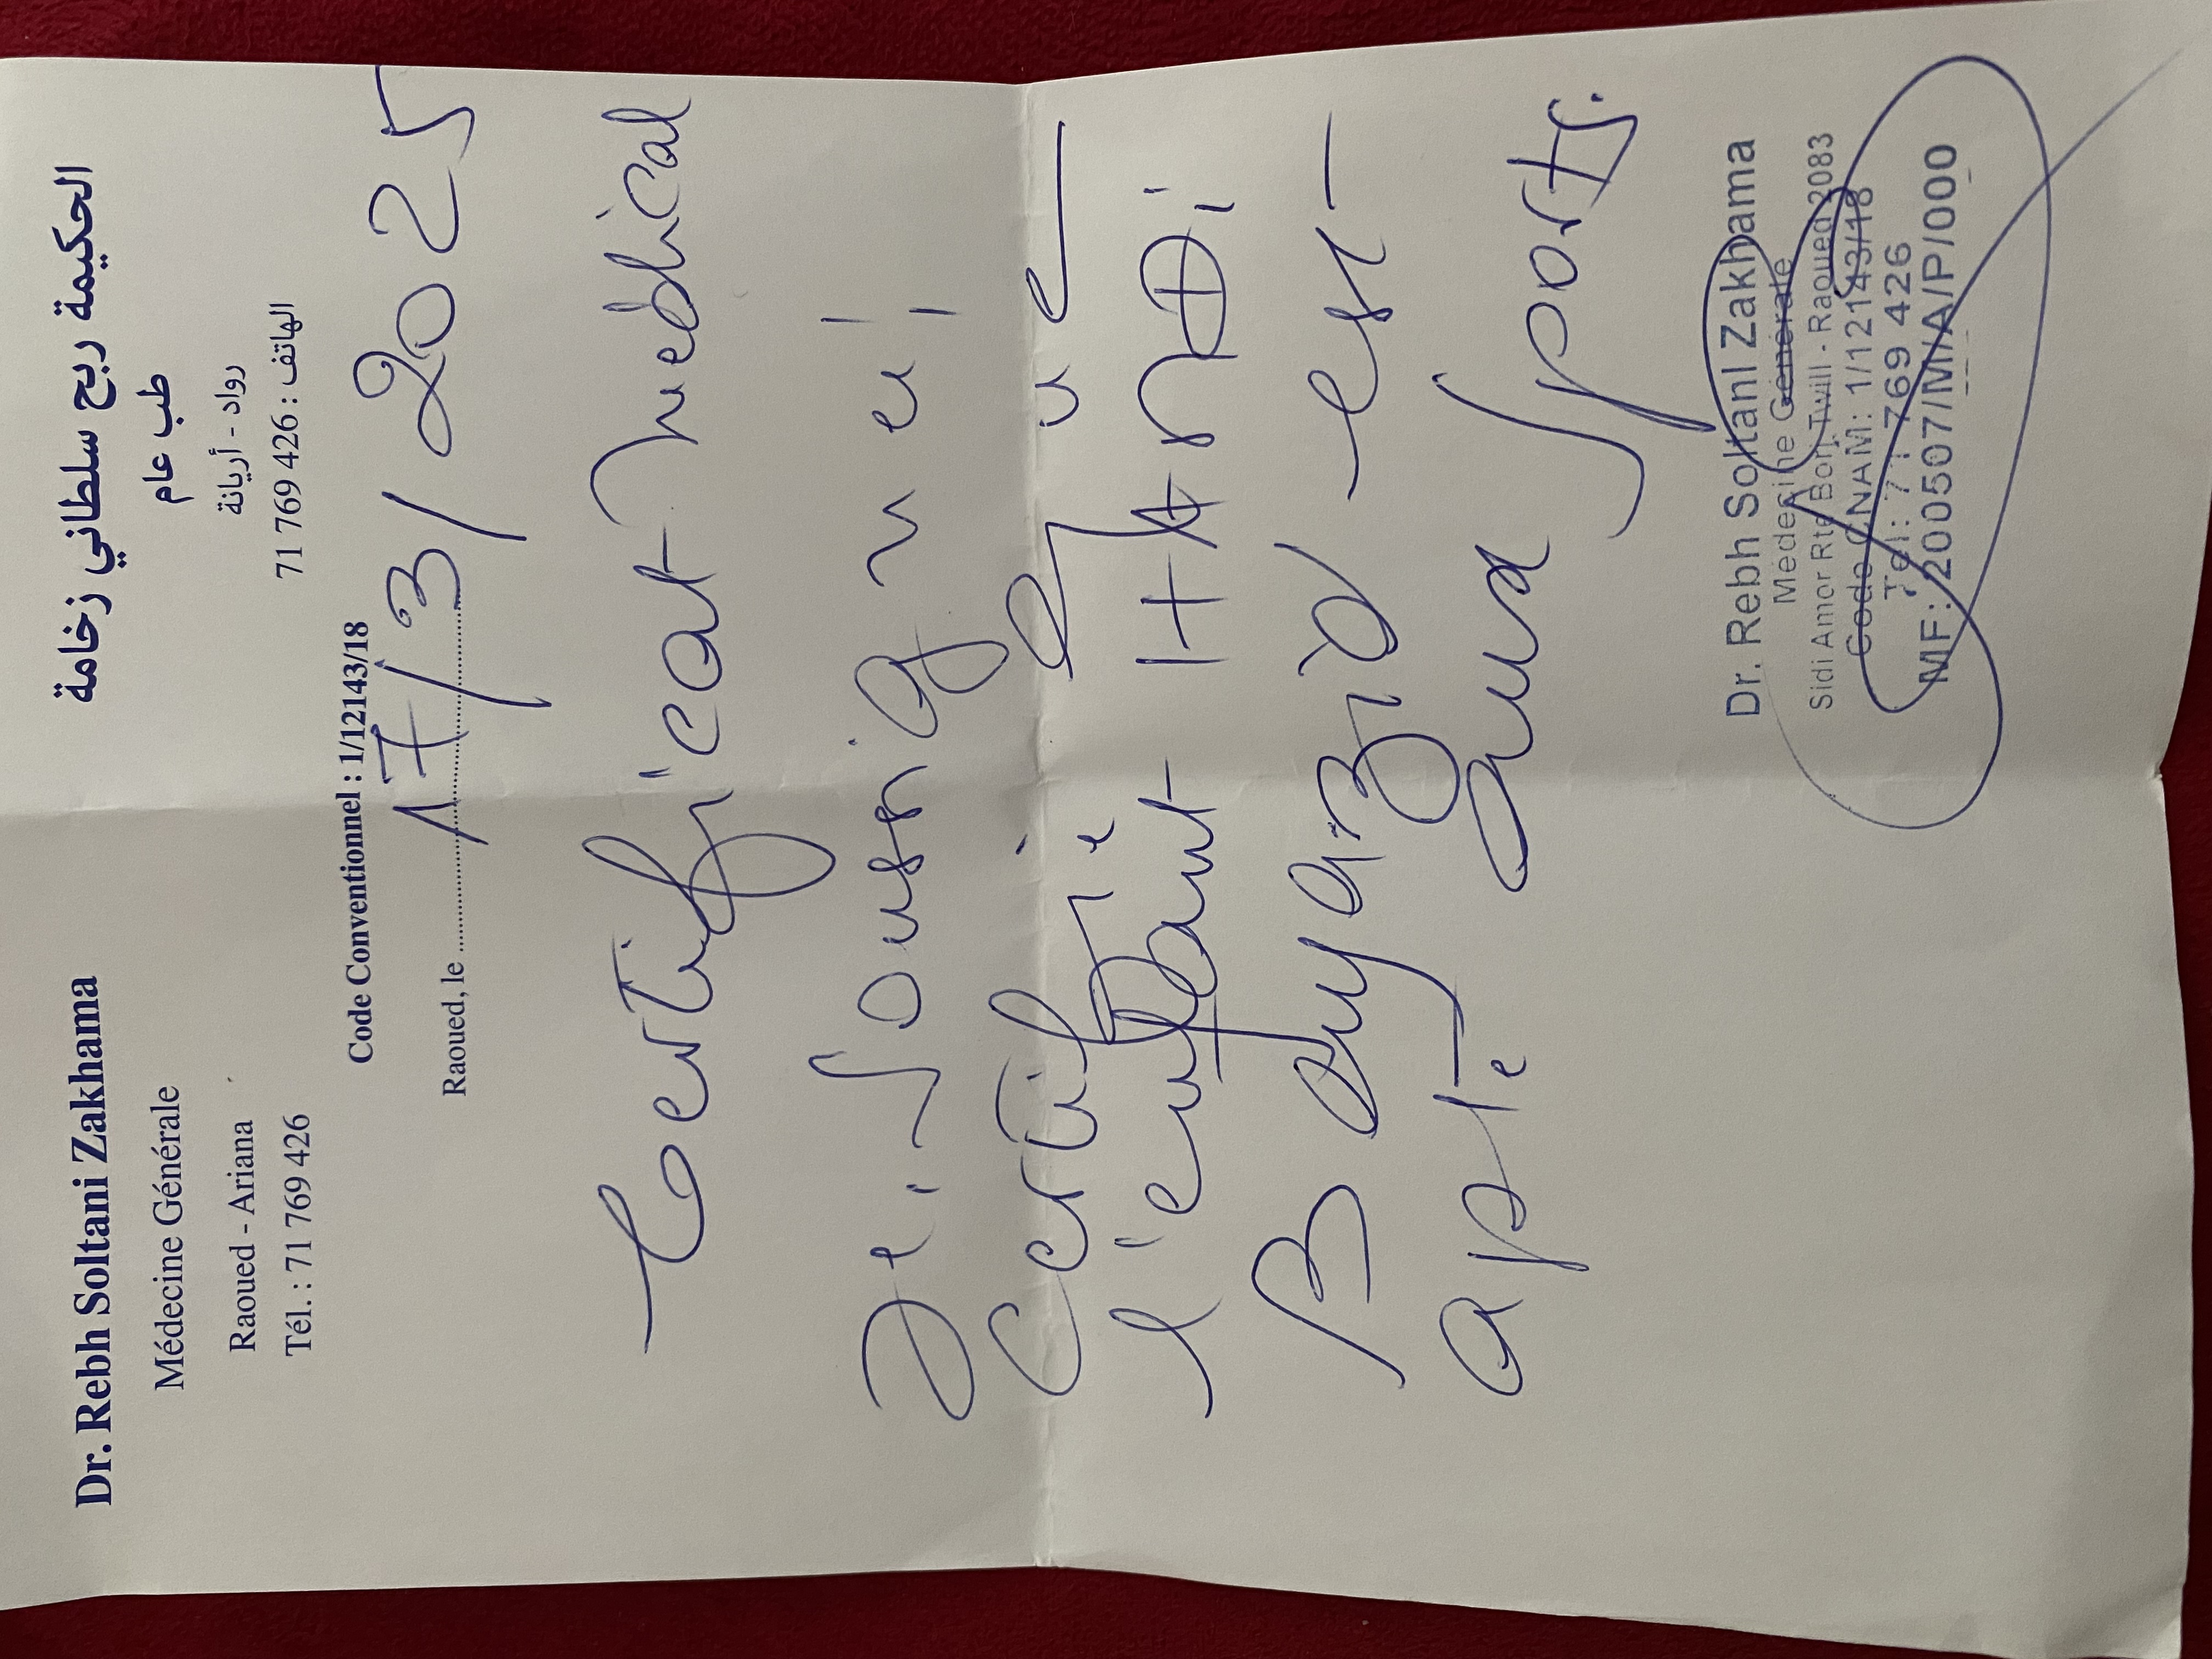 Dr. Rebh Soltani Zakhama
Médecine Générale
Raoued - Ariana
Tél. : 71 769 426
الحكيمة ربح سلطاني زخامة
طب عام
رواد - أريانة
الهاتف : 426 769 71
Code Conventionnel : 1/12143/18
Raoued, le 17/3/2025
Certificat medical
Je soussigné
certifie que
l'enfant HAMDI
Bayazid est
apte aux sports.
Dr. Rebh Soltani Zakhama
Médecine Générale
Sidi Amor Rte Borj Twill - Raoued 2083
Code CNAM: 1/12143/18
Tel: 71 769 426
MF: 200507/M/A/P/000